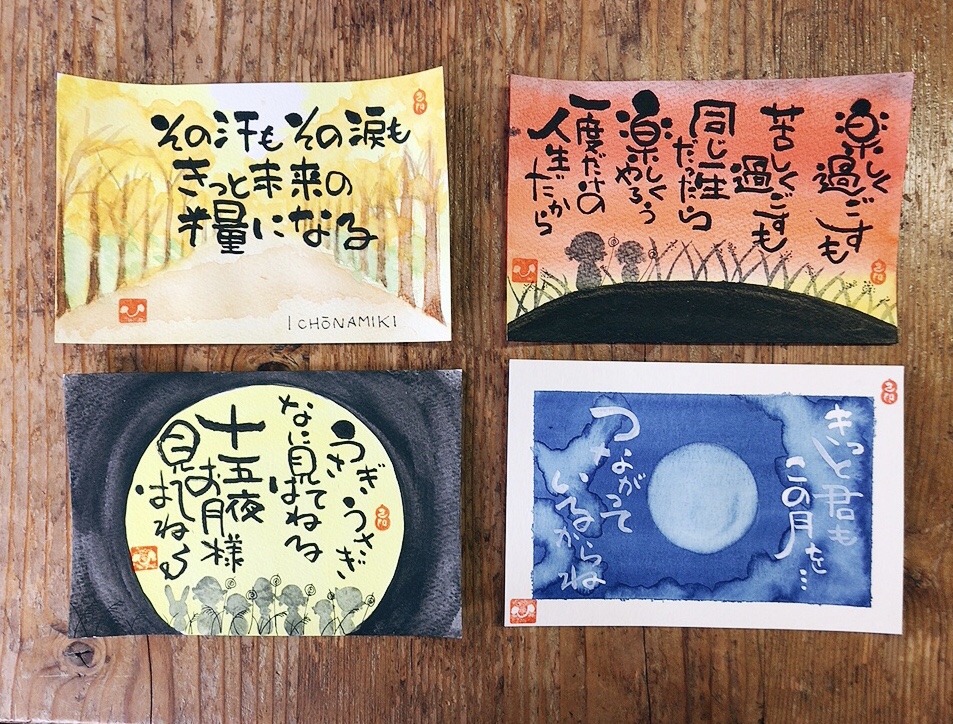 その汗も その涙も
きっと未来の
糧になる
ICHŌNAMIKI
楽しく
過ごすも
苦しく
過ごすも
同じ一生
だったら
楽しく
やろう
一度だけの
人生だから
うさぎ うさぎ
なに見て
はねる
十五夜
お月様
見て
はねる
きっと君も
この月を…
つながって
いるからね